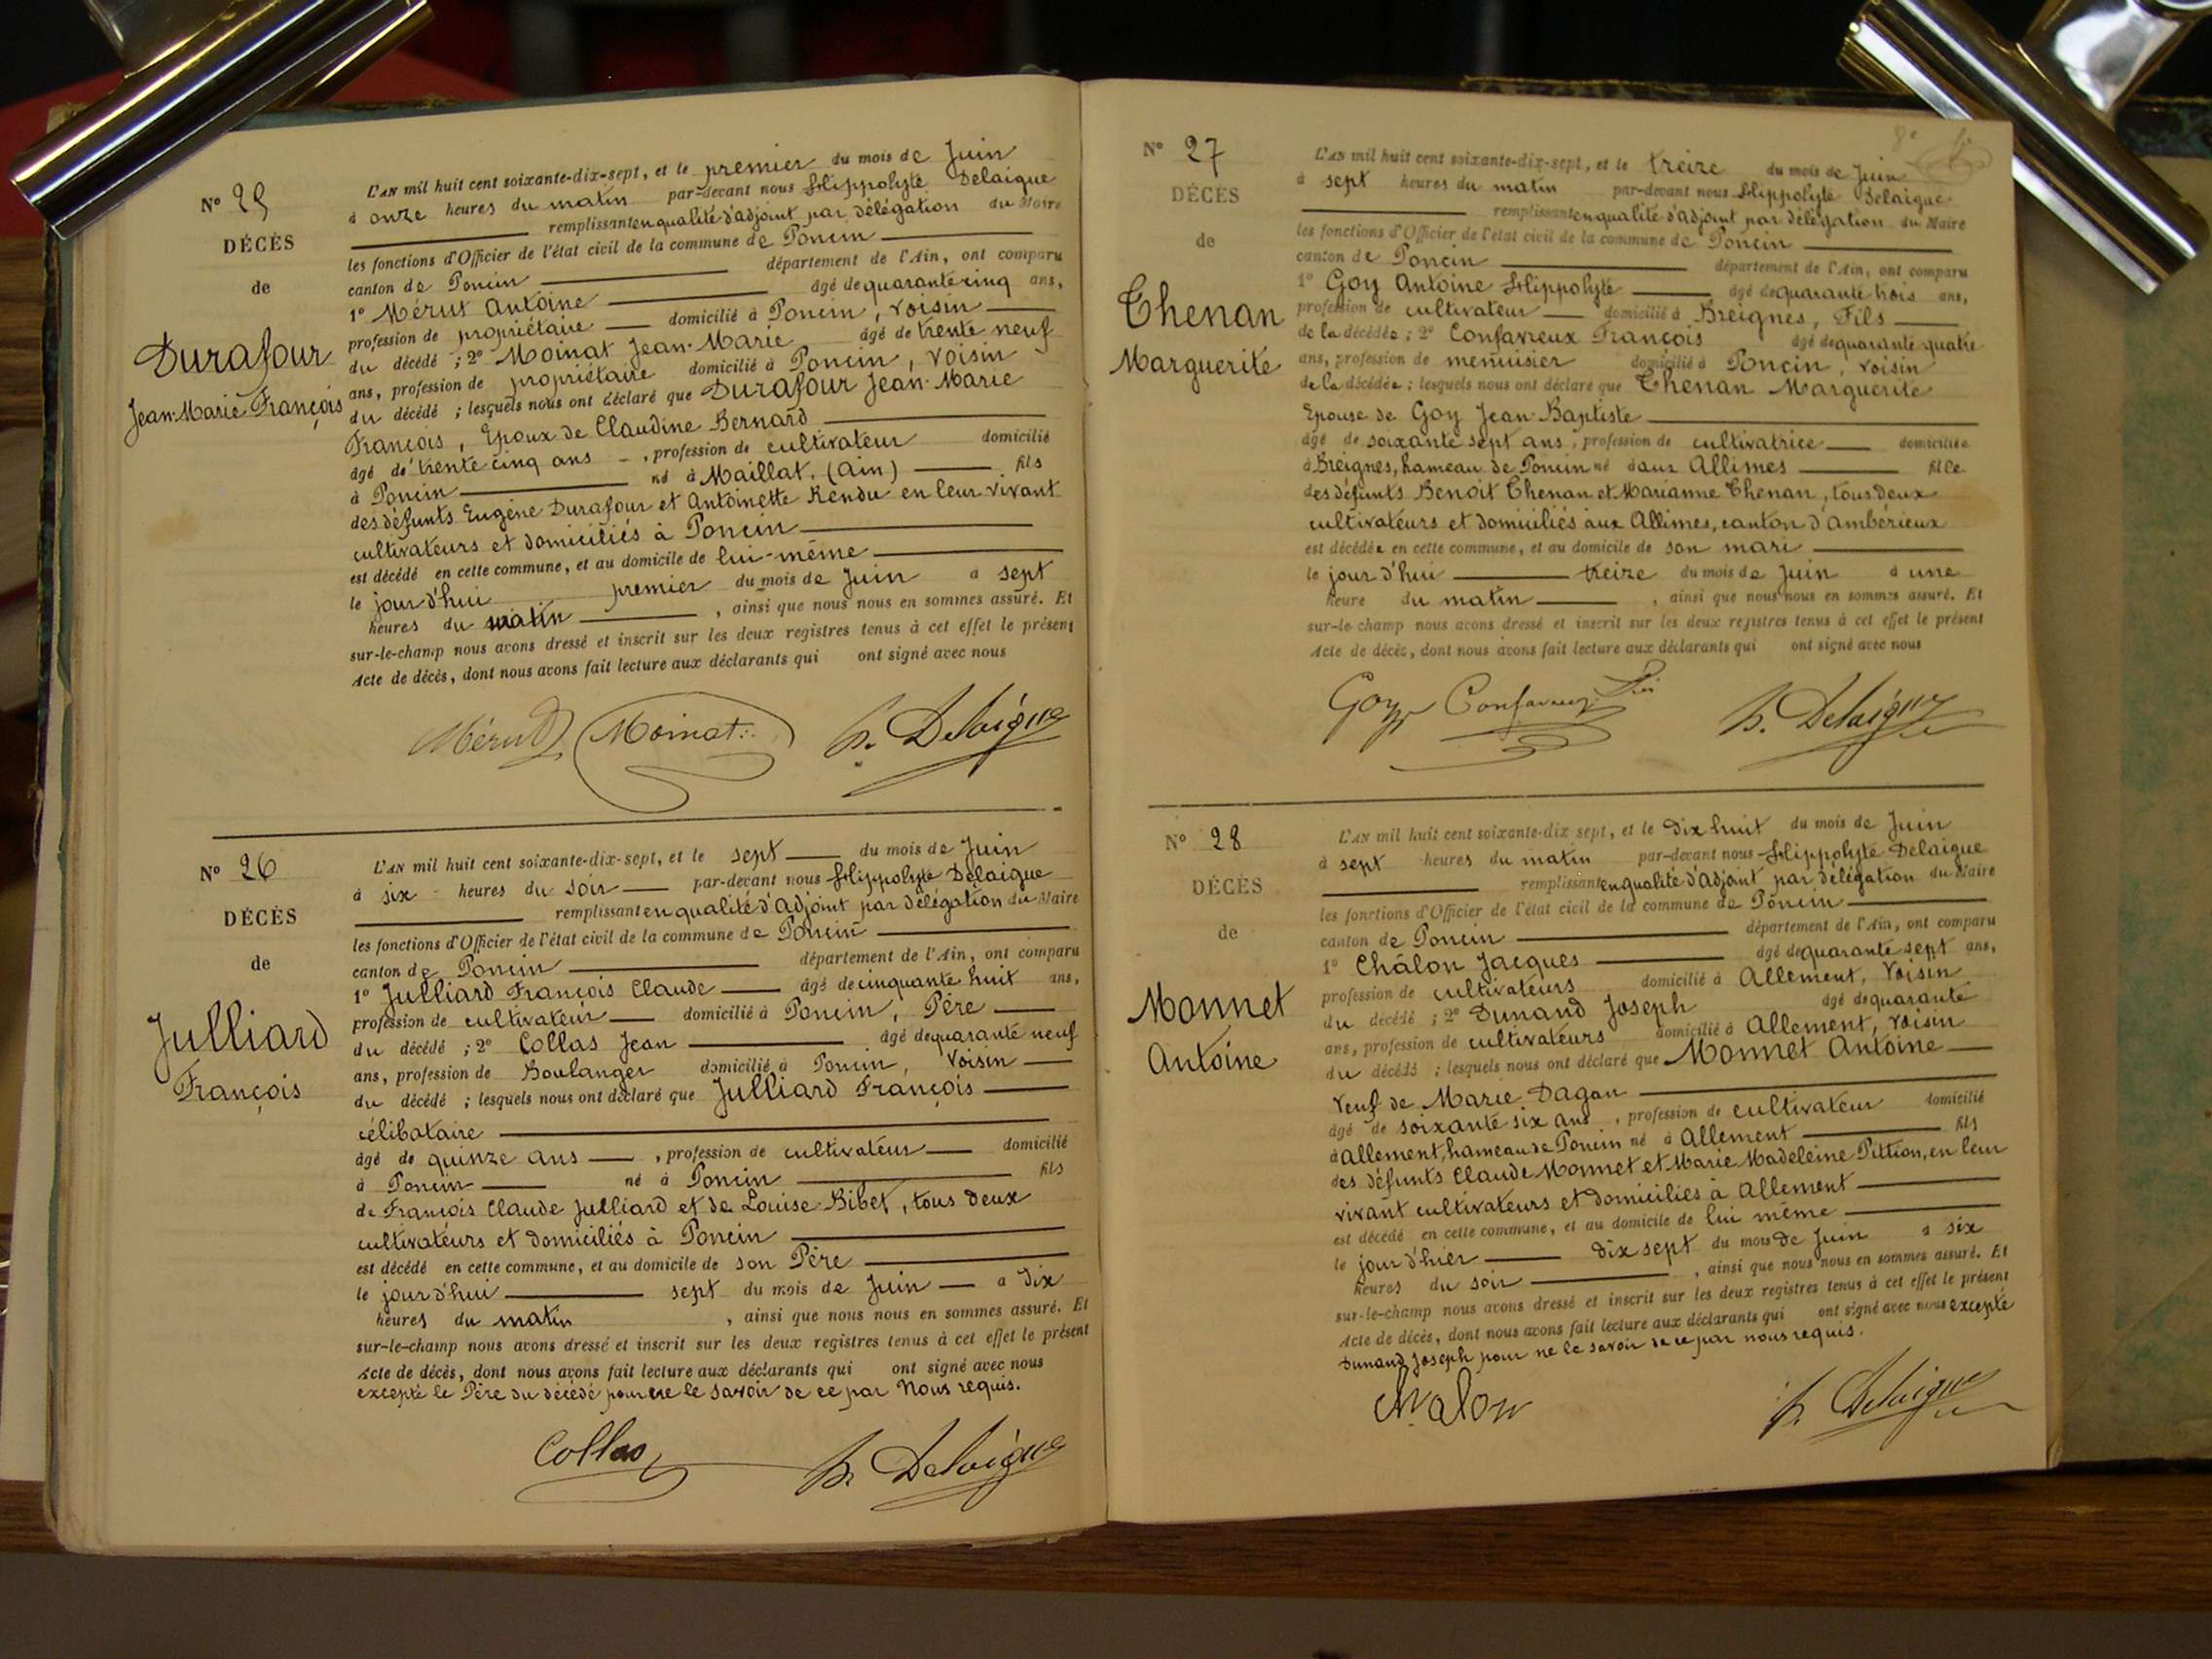 N° 25
DÉCÈS
de
Durafour
Jean-Marie François
L'AN mil huit cent soixante-dix-sept, et le premier du mois de Juin
à onze heures du matin par-devant nous Hippolyte Delaigue
remplissant en qualité d'adjoint par délégation du Maire
les fonctions d'Officier de l'état civil de la commune de Poncin
canton de Poncin département de l'Ain, ont comparu
1° Mérut Antoine âgé de quarante cinq ans,
profession de propriétaire domicilié à Poncin, voisin
du décédé ; 2° Moinat Jean-Marie âgé de trente neuf
ans, profession de propriétaire domicilié à Poncin, voisin
du décédé ; lesquels nous ont déclaré que Durafour Jean-Marie
François, Epoux de Claudine Bernard
âgé de trente cinq ans, profession de cultivateur domicilié
à Poncin né à Maillat, (Ain) fils
des défunts Eugène Durafour et Antoinette Rendu en leur vivant
cultivateurs et domiciliés à Poncin
est décédé en cette commune, et au domicile de lui-même
le jour d'hui premier du mois de Juin à sept
heures du matin , ainsi que nous nous en sommes assuré. Et
sur-le-champ nous avons dressé et inscrit sur les deux registres tenus à cet effet le présent
Acte de décès, dont nous avons fait lecture aux déclarants qui ont signé avec nous
Mérut Moinat H. Delaigue
N° 26
DÉCÈS
de
Julliard
François
L'AN mil huit cent soixante-dix-sept, et le sept du mois de Juin
à six heures du soir par-devant nous Hippolyte Delaigue
remplissant en qualité d'Adjoint par délégation du Maire
les fonctions d'Officier de l'état civil de la commune de Poncin
canton de Poncin département de l'Ain, ont comparu
1° Julliard François Claude âgé de cinquante huit ans,
profession de cultivateur domicilié à Poncin, Père
du décédé ; 2° Collas Jean âgé de quarante neuf
ans, profession de Boulanger domicilié à Poncin, Voisin
du décédé ; lesquels nous ont déclaré que Julliard François
célibataire
âgé de quinze ans , profession de cultivateur domicilié
à Poncin né à Poncin fils
de François Claude Julliard et de Louise Bibet, tous deux
cultivateurs et domiciliés à Poncin
est décédé en cette commune, et au domicile de son Père
le jour d'hui sept du mois de Juin à dix
heures du matin , ainsi que nous nous en sommes assuré. Et
sur-le-champ nous avons dressé et inscrit sur les deux registres tenus à cet effet le présent
Acte de décès, dont nous avons fait lecture aux déclarants qui ont signé avec nous
excepté le Père du décédé pour ne le savoir de ce par Nous requis.
Collas H. Delaigue
N° 27
DÉCÈS
de
Thenan
Marguerite
L'AN mil huit cent soixante-dix-sept, et le treize du mois de Juin
à sept heures du matin par-devant nous Hippolyte Delaigue
remplissant en qualité d'adjoint par délégation du Maire
les fonctions d'Officier de l'état civil de la commune de Poncin
canton de Poncin département de l'Ain, ont comparu
1° Goy Antoine Hippolyte âgé de quarante trois ans,
profession de cultivateur domicilié à Breignes, Fils
de la décédée ; 2° Confavreux François âgé de quarante quatre
ans, profession de menuisier domicilié à Poncin, voisin
de la décédée ; lesquels nous ont déclaré que Thenan Marguerite
Epouse de Goy Jean-Baptiste
âgé de soixante sept ans, profession de cultivatrice domiciliée
à Breignes, hameau de Poncin né aux Allimes fille
des défunts Benoit Thenan et Marianne Thenan, tous deux
cultivateurs et domiciliés aux Allimes, canton d'Ambérieux
est décédée en cette commune, et au domicile de son mari
le jour d'hui treize du mois de Juin à une
heure du matin , ainsi que nous nous en sommes assuré. Et
sur-le-champ nous avons dressé et inscrit sur les deux registres tenus à cet effet le présent
Acte de décès, dont nous avons fait lecture aux déclarants qui ont signé avec nous
Goy Confavreux H. Delaigue
N° 28
DÉCÈS
de
Monnet
Antoine
L'AN mil huit cent soixante-dix sept, et le dix huit du mois de Juin
à sept heures du matin par-devant nous Hippolyte Delaigue
remplissant en qualité d'Adjoint par délégation du Maire
les fonctions d'Officier de l'état civil de la commune de Poncin
canton de Poncin département de l'Ain, ont comparu
1° Châlon Jacques âgé de quarante sept ans,
profession de cultivateurs domicilié à Allement, Voisin
du décédé ; 2° Dunand Joseph âgé de quarante
ans, profession de cultivateurs domicilié à Allement, voisin
du décédé ; lesquels nous ont déclaré que Monnet Antoine
Veuf de Marie Dagan
âgé de soixante six ans , profession de cultivateur domicilié
à Allement, hameau de Poncin né à Allement fils
des défunts Claude Monnet et Marie Madeleine Pittion, en leur
vivant cultivateurs et domiciliés à Allement
est décédé en cette commune, et au domicile de lui même
le jour d'hier dix sept du mois de Juin à six
heures du soir , ainsi que nous nous en sommes assuré. Et
sur-le-champ nous avons dressé et inscrit sur les deux registres tenus à cet effet le présent
Acte de décès, dont nous avons fait lecture aux déclarants qui ont signé avec nous excepté
Dunand Joseph pour ne le savoir de ce par nous requis.
Chalon H. Delaigue